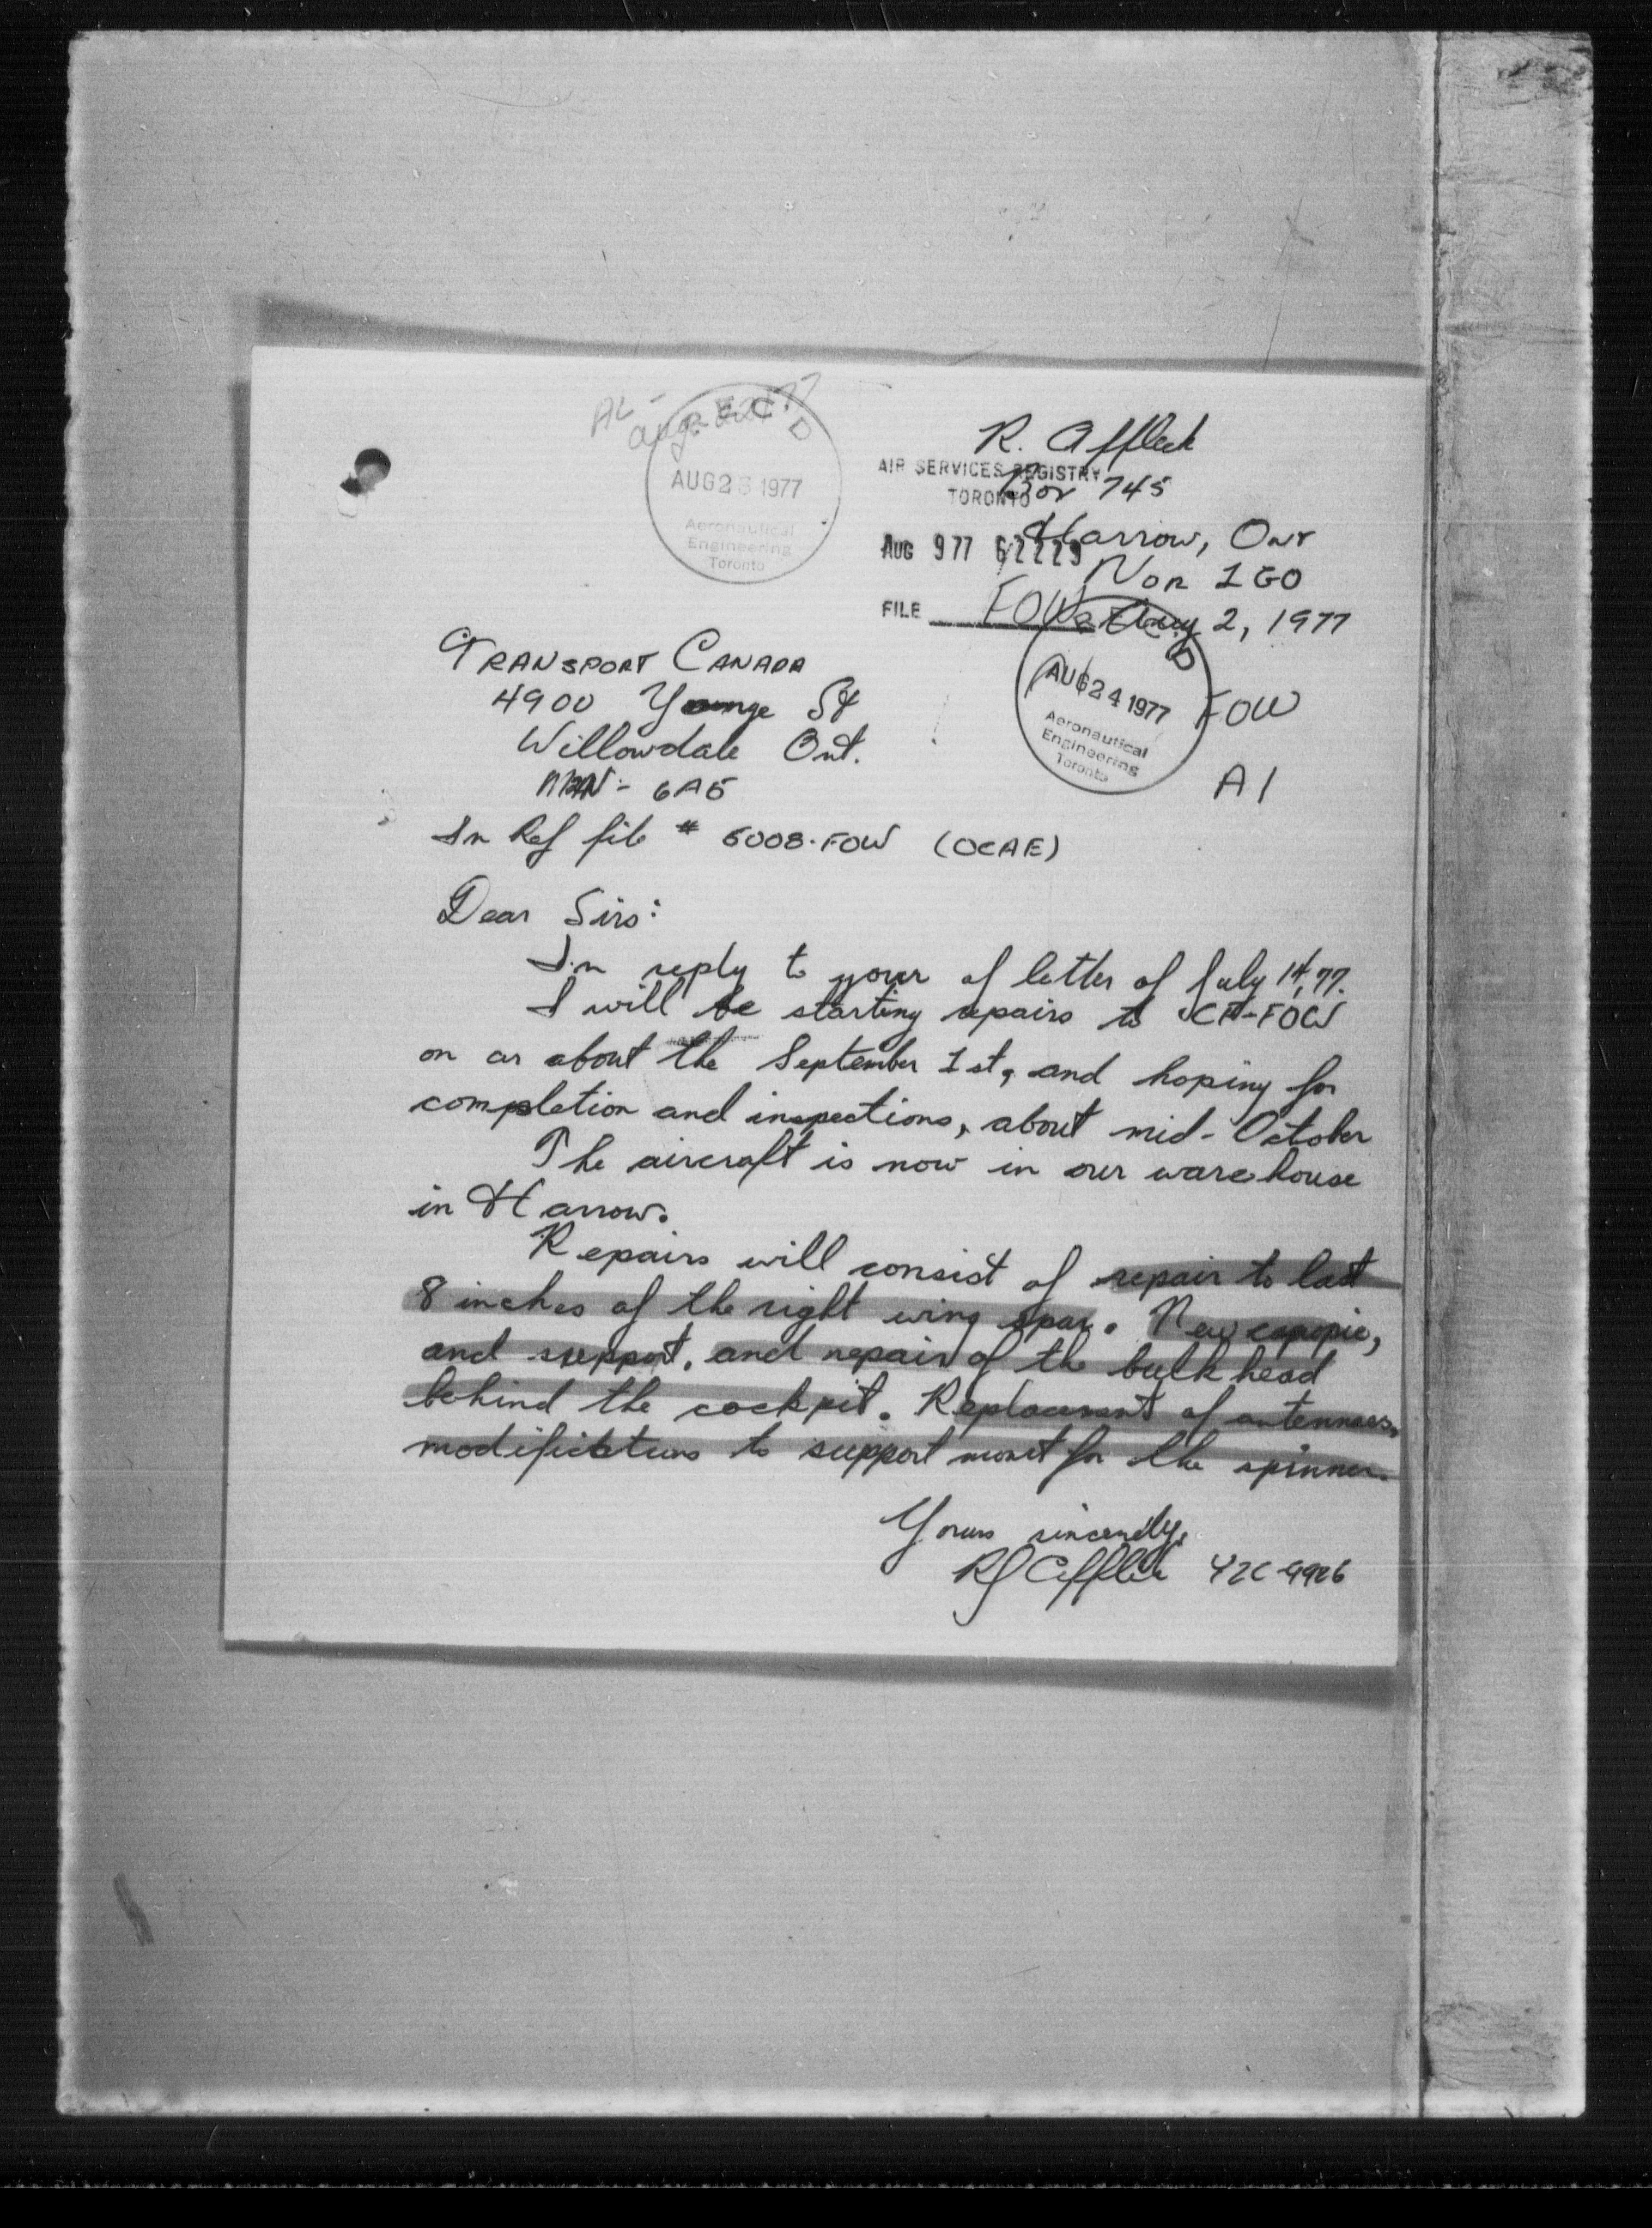 R. Affleck
AIR SERVICES REGISTRY
TORONTO
Box 745
Harrow, Ont
AUG 9 77 62229
NOR 1G0
FILE FOW
Aug 2, 1977
AUG 25 1977
Aeronautical
Engineering
Toronto
AUG 24 1977
Aeronautical
Engineering
Toronto
FOW
A1
TRANSPORT CANADA
4900 Younge St
Willowdale Ont.
6A5
In Ref file # 5008-FOW (OCAE)
Dear Sirs:
In reply to your of letter of July 14, 77.
I will be starting repairs to CF-FOW
on or about the September 1st, and hoping for
completion and inspections, about mid-October
The aircraft is now in our warehouse
in Harrow.
Repairs will consist of repair to last
8 inches of the right wing spar. New canopie,
and support, and repair of the bulkhead
behind the cockpit. Replacement of antennaes,
modifications to support mont for the spinner.
Yours sincerely,
RJ Affleck